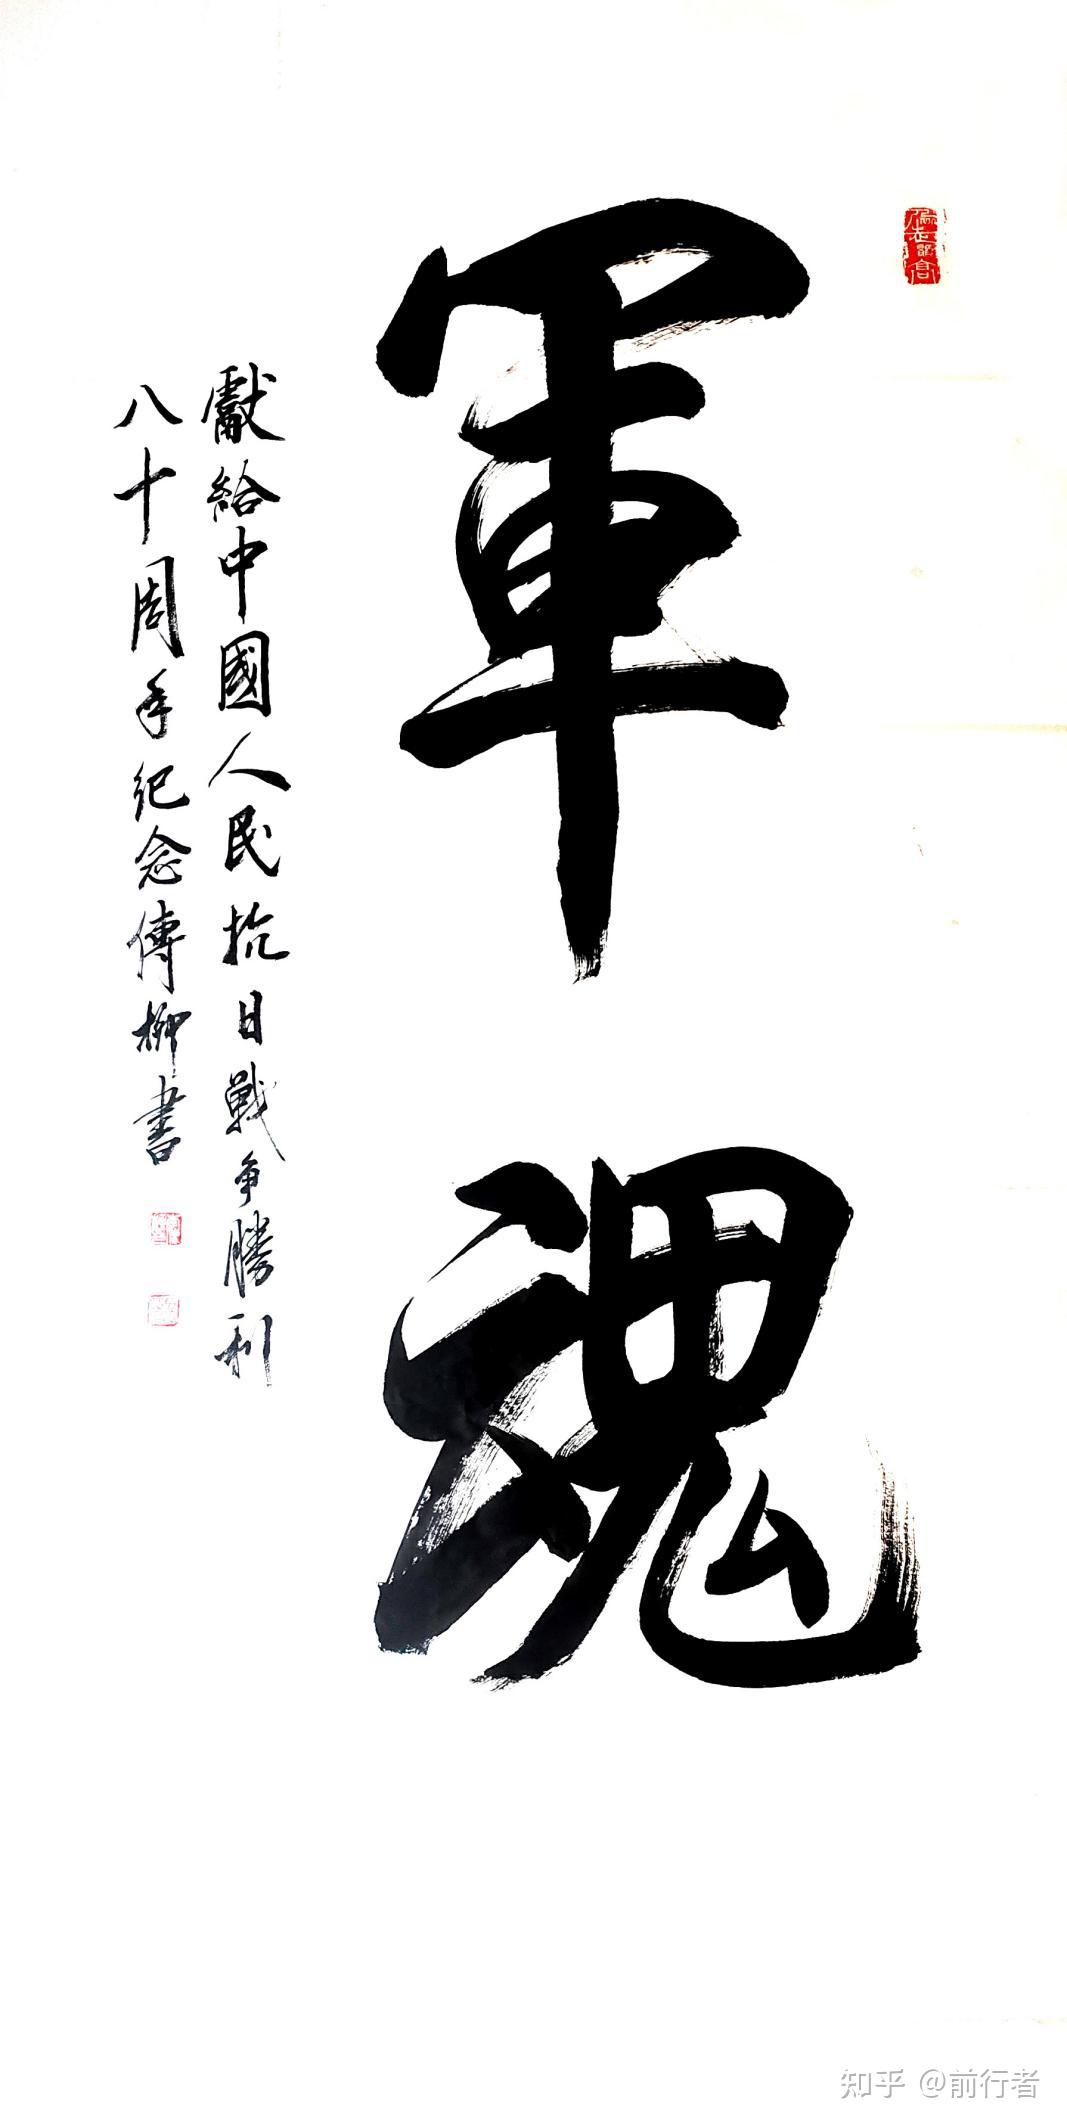 軍魂
獻給中國人民抗日戰争勝利
八十周年紀念傳柳書
知乎 @前行者